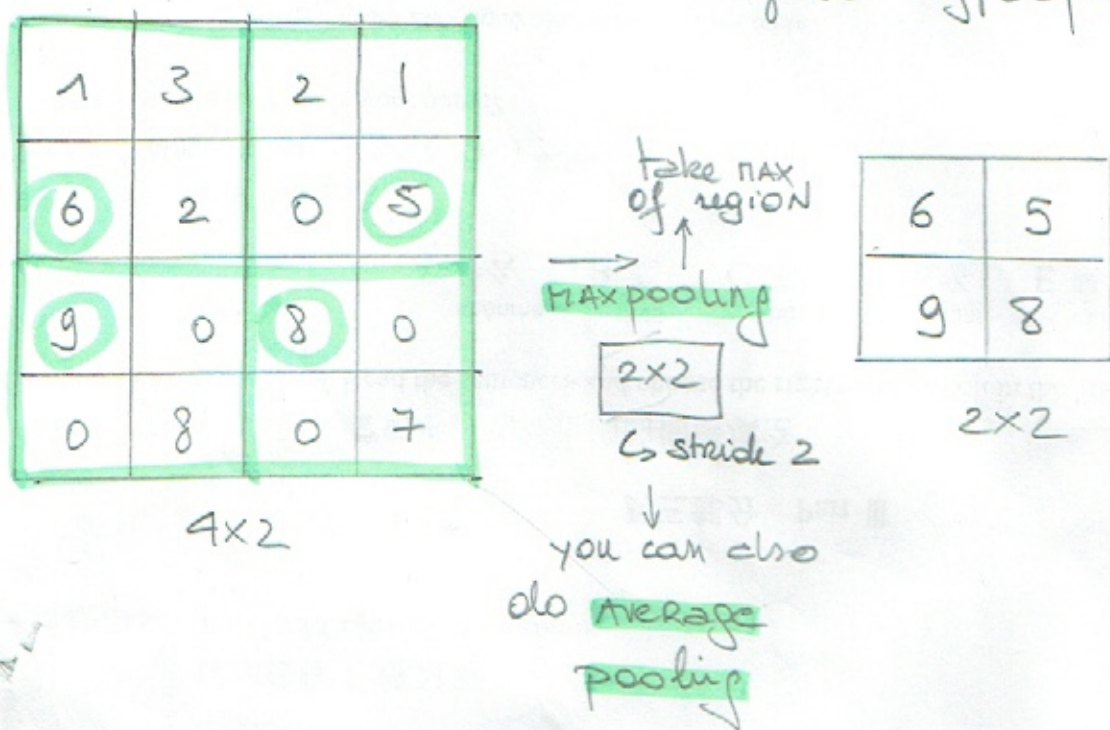 1 3 2 1
6 2 0 5
9 0 8 0
0 8 0 7
4×2
take MAX
of region
MAXpooling
2×2
stride 2
you can also
do Average
pooling
6 5
9 8
2×2